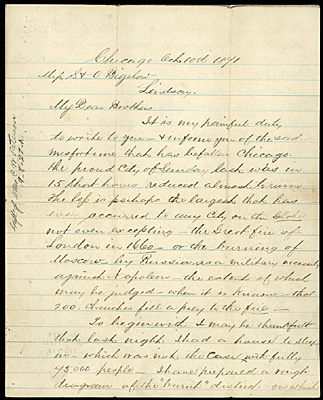 Chicago Oct 10th 1871
Messrs S & O Bigelow
Lindsay.
My Dear Brothers
It is my painful duty
to write to you & inform you of the sad
misfortune that has befallen Chicago.
the proud City of Sunday last was in
15 short hours reduced almost to ruins
The loss is perhaps the largest that has
ever occurred to any City on the
not even excepting - the Great fire of
London in 1660 - or the burning of
Moscow - by Russia, as a military necessity
against Napoleon - the extent of which
may be judged - when it is known - that
200 churches fell a prey to the fire -
To begin with I may be thankful
that last night I had a house to sleep
in - which was not the case with fully
75000 people - I have prepared a rough
diagram of the "burnt" district on which